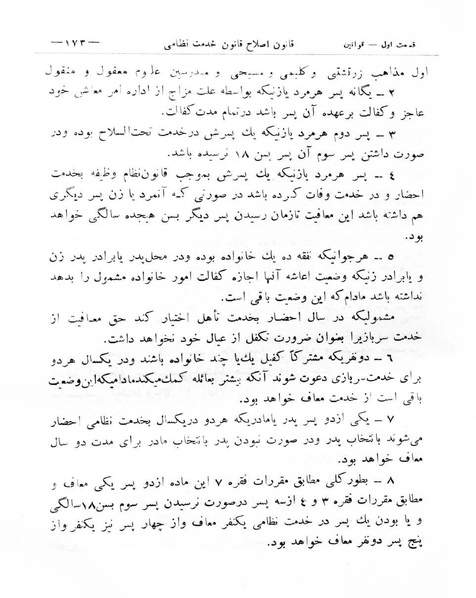 قسمت اول — قوانین
قانون اصلاح قانون خدمت نظامی
— ۱۷۳ —
اول مذاهب زرتشتی و کلیمی و مسیحی و مدرسین علوم معقول و منقول
۲ – یگانه پسر هرمرد یازنیکه بواسطه علت مزاج از اداره امر معاش خود
عاجز و کفالت برعهده آن پسر باشد درتمام مدت کفالت.
۳ – پسر دوم هرمرد یازنیکه یك پسرش درخدمت تحت‌السلاح بوده ودر
صورت داشتن پسر سوم آن پسر بسن ۱۸ نرسیده باشد.
٤ – پسر هرمرد یازنیکه یك پسرش بموجب قانون‌نظام وظیفه بخدمت
احضار و در خدمت وفات کرده باشد در صورتی که آنمرد یا زن پسر دیگری
هم داشته باشد این معافیت تازمان رسیدن پسر دیگر بسن هیجده سالگی خواهد
بود.
۵ – هرجوانیکه نفقه ده یك خانواده بوده ودر محل‌پدر یابرادر پدر زن
و یابرادر زنیکه وضعیت اعاشه آنها اجازه کفالت امور خانواده مشمول را بدهد
نداشته باشد مادام‌که این وضعیت باقی است.
مشمولیکه در سال احضار بخدمت تأهل اختیار کند حق معافیت از
خدمت سربازیرا بعنوان ضرورت تکفل از عیال خود نخواهد داشت.
٦ – دونفریکه مشترکاً کفیل یك‌یا چند خانواده باشند ودر یکسال هردو
برای خدمت‌سربازی دعوت شوند آنکه بیشتر بعائله کمك‌میکندمادامیکه‌این‌وضعیت
باقی است از خدمت معاف خواهد بود.
۷ – یکی ازدو پسر پدر یامادریکه هردو دریکسال بخدمت نظامی احضار
می‌شوند بانتخاب پدر ودر صورت نبودن پدر بانتخاب مادر برای مدت دو سال
معاف خواهد بود.
۸ – بطورکلی مطابق مقررات فقره ۷ این ماده ازدو پسر یکی معاف و
مطابق مقررات فقره ۳ و ٤ ازسه پسر درصورت نرسیدن پسر سوم بسن۱۸سالگی
و یا بودن یك پسر در خدمت نظامی یکنفر معاف واز چهار پسر نیز یکنفر واز
پنج پسر دونفر معاف خواهد بود.